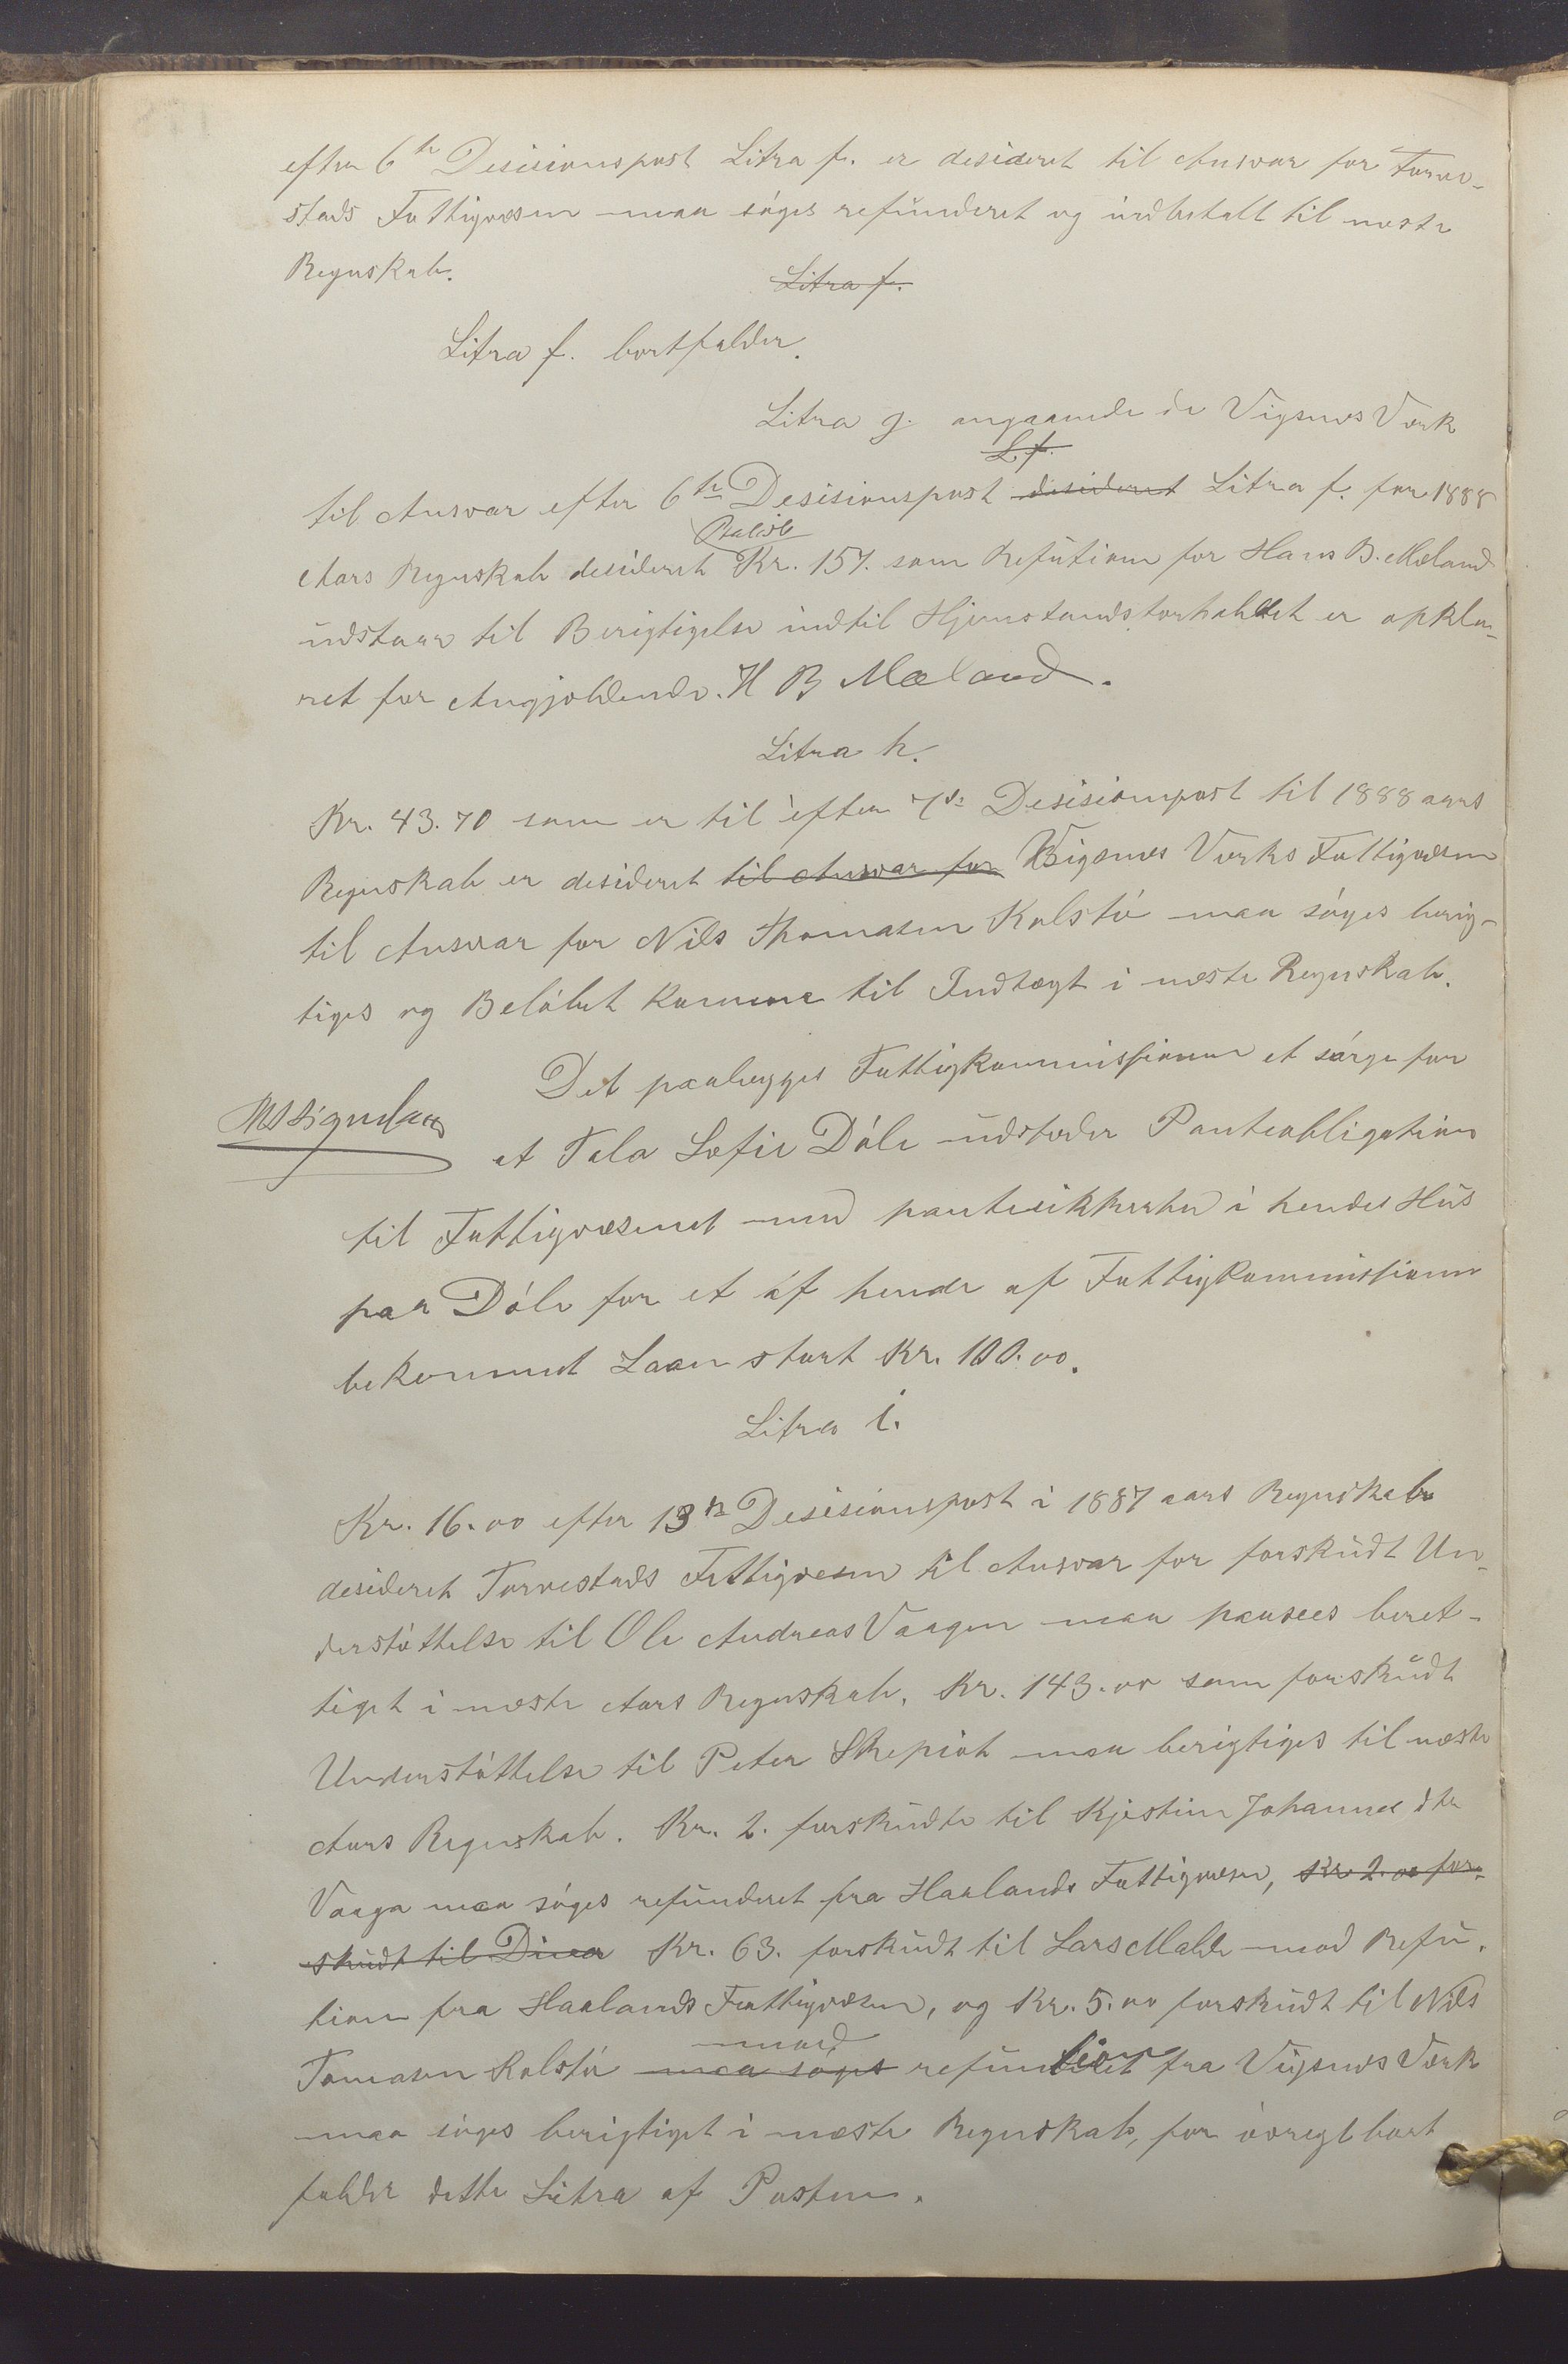 efter 6te Desisionspost Litra f. er desideret til Ansvar for Torve-
stads Fattigvæsen maa søges refunderet og indbetalt til næste
Regnskab.
Litra f.
Litra f. bortfalder.
Litra g. angaaende de Vigsnes Værk
L. f.
til Ansvar efter 6te Desisionspost desideret Litra f. for 1888
Aars Regnskab desideret Kr. 157. som Refution for Hans B. Mæland
udstaar til Berigtigelse indtil Hjemstandsforholdet er opkla-
ret for Angjældende. H B Mæland.
Litra h.
Kr. 43.70 som er til efter 7de Desisionspost til 1888 aars
Regnskab er desideret til Ansvar for Vigsnes Værks Fattigvæsen
til Ansvar for Nils Thomasen Kolstø maa søges berig-
tiges og Beløbet komme til Indtægt i næste Regnskab.
Det paalegges Fattigkommissionen at sørge for
at Tala Sofie Døle udsteder Panteobligation
til Fattigvæsenet med pantesikkerhed i hendes Hus
paa Døle for et af hende af Fattigkommissionen
bekommet Laan stort Kr. 100.00.
Litra i.
Kr. 16.00 efter 13de Desisionspost i 1887 aars Regnskab
desideret Torvestads Fattigvæsen til Ansvar for forskudt Un-
derstøttelse til Ole Andreas Vaagen maa paasees beret-
tiget i næste Aars Regnskab. Kr. 143.00 som forskudt
Understøttelse til Peter Skepiot maa berigtiges til næste
Aars Regnskab. Kr. 2. forskudte til Kjestine Johanne dtr
Vaaga maa søges refunderet fra Haalands Fattigvæsen, Kr 2.00 for-
skudt til Kr. 63. forskudt til Lars Malde mod Refu-
tion fra Haalands Fattigvæsen, og Kr. 5.00 forskudt til Nils
mod
Tomasen Kolstø maa søges refution fra Vigsnes Værk
maa søges berigtiget i næste Regnskab, for øvregt bort
falder dette Litra af Posten.